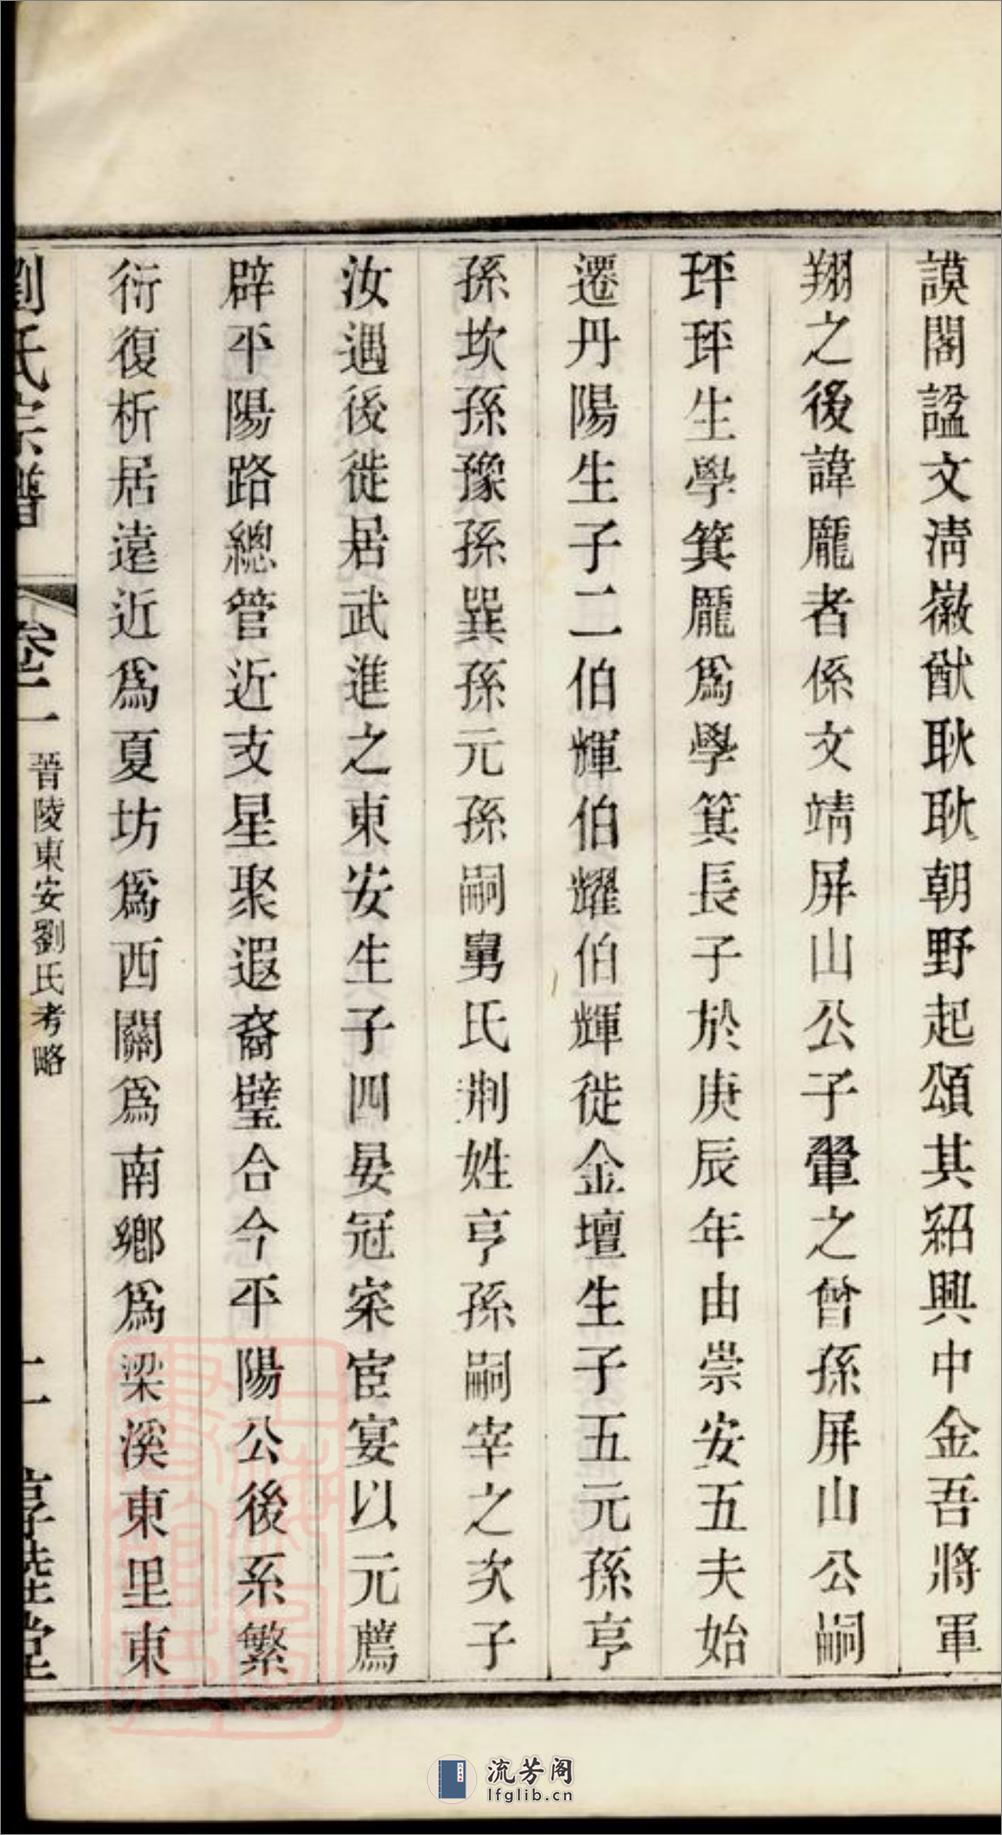 謨閣諡文淸徽猷耿耿朝野起頌其紹興中金吾將軍
翔之後諱龎者係文靖屏山公子翬之曾孫屏山公嗣
玶玶生學箕龎爲學箕長子於庚辰年由崇安五夫始
遷丹陽生子二伯輝伯耀伯輝徙金壇生子五元孫亨
孫坎孫豫孫巽孫元孫嗣舅氏荆姓亨孫嗣宰之次子
汝遇後徙居武進之東安生子四晏冠寀宦宴以元薦
辟平陽路總管近支星聚遐裔璧合今平陽公後系繁
衍復析居遠近爲夏坊爲西關爲南鄉爲梁溪東里東
劉氏宗譜
卷二
晉陵東安劉氏考略
二
惇睦堂
流芳阁
lfglib.cn